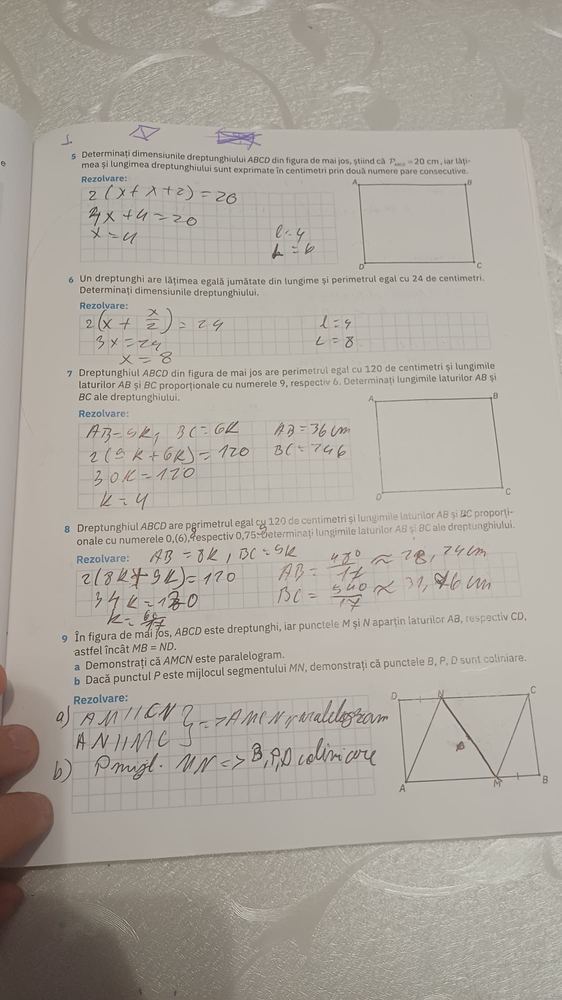 5 Determinați dimensiunile dreptunghiului ABCD din figura de mai jos, știind că P_ABCD = 20 cm, iar lăți-
mea și lungimea dreptunghiului sunt exprimate în centimetri prin două numere pare consecutive.
Rezolvare:
2(x+x+2)=20
4x+4=20
x=4
l=4
L=6
A B
D C
6 Un dreptunghi are lățimea egală jumătate din lungime și perimetrul egal cu 24 de centimetri.
Determinați dimensiunile dreptunghiului.
Rezolvare:
2(x+x/2)=24
3x=24
x=8
l=4
L=8
7 Dreptunghiul ABCD din figura de mai jos are perimetrul egal cu 120 de centimetri și lungimile
laturilor AB și BC proporționale cu numerele 9, respectiv 6. Determinați lungimile laturilor AB și
BC ale dreptunghiului.
Rezolvare:
AB=9k, BC=6k
2(9k+6k)=120
30k=120
k=4
AB=36cm
BC=
A B
D C
8 Dreptunghiul ABCD are perimetrul egal cu 120 de centimetri și lungimile laturilor AB și BC proporți-
onale cu numerele 0,(6), respectiv 0,75. Determinați lungimile laturilor AB și BC ale dreptunghiului.
Rezolvare: AB=8k, BC=9k
2(8k+9k)=120
34k=120
k=60/17
AB=480/17≈28,24cm
BC=540/17≈31,76cm
9 În figura de mai jos, ABCD este dreptunghi, iar punctele M și N aparțin laturilor AB, respectiv CD,
astfel încât MB = ND.
a Demonstrați că AMCN este paralelogram.
b Dacă punctul P este mijlocul segmentului MN, demonstrați că punctele B, P, D sunt coliniare.
Rezolvare:
a) AM//CN
AN//MC } => AMCN paralelogram
b) P mijl. MN => B,P,D coliniare
D N C
A M B